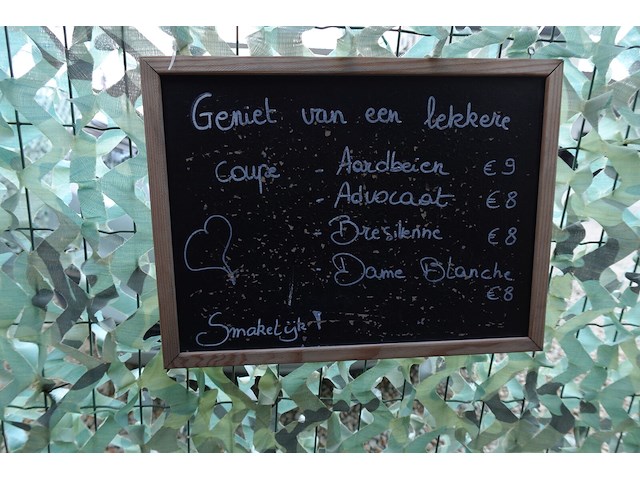 Geniet van een lekkere
Coupe Aardbeien €9
Advocaat €8
Bresilienne €8
Dame Blanche
€8
Smakelijk!